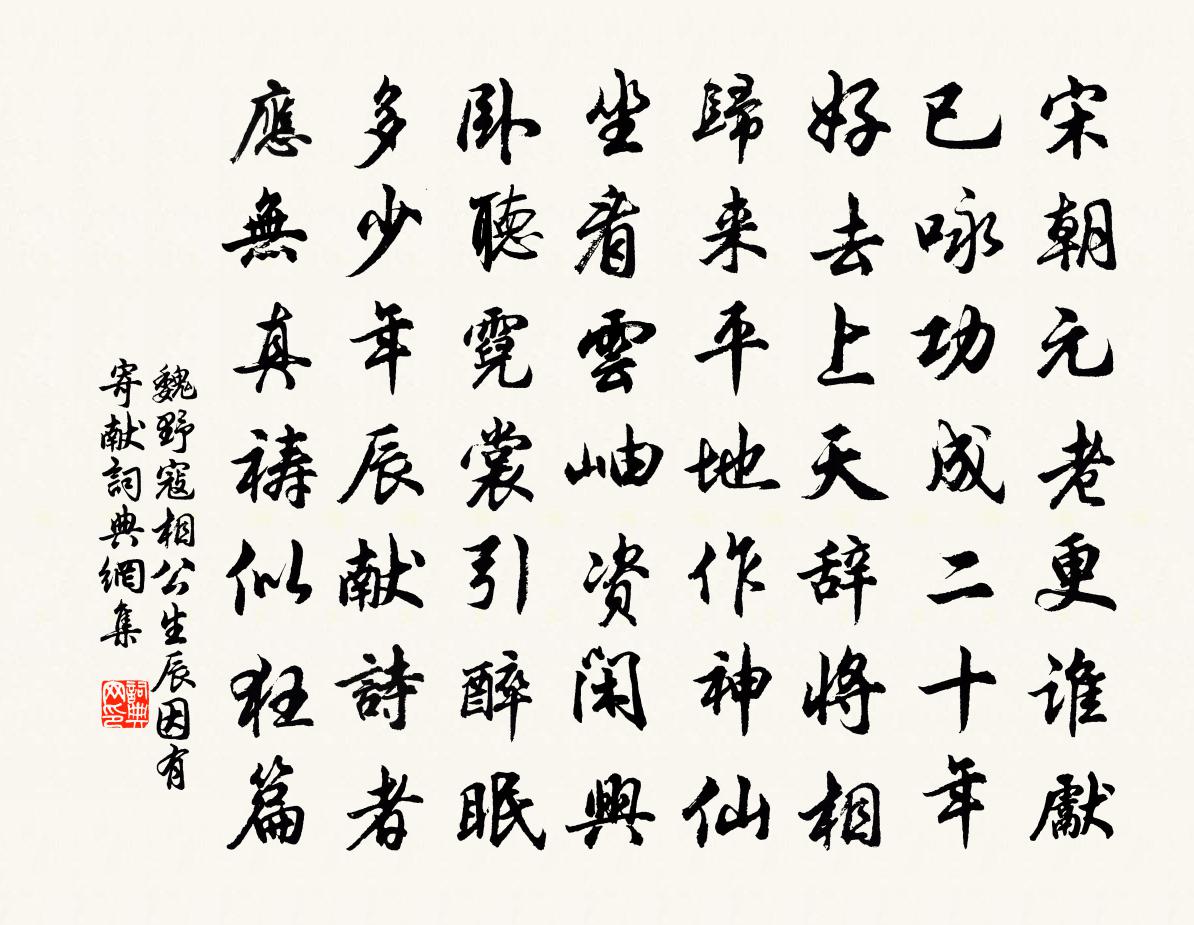 宋朝元老更谁獻
已咏功成二十年
好去上天辞將相
歸来平地作神仙
坐看雲岫资闲興
卧聽霓裳引醉眠
多少年辰献詩者
應無真禱似狂篇
魏野寇相公生辰因有
寄献詞典網集
詞典网印